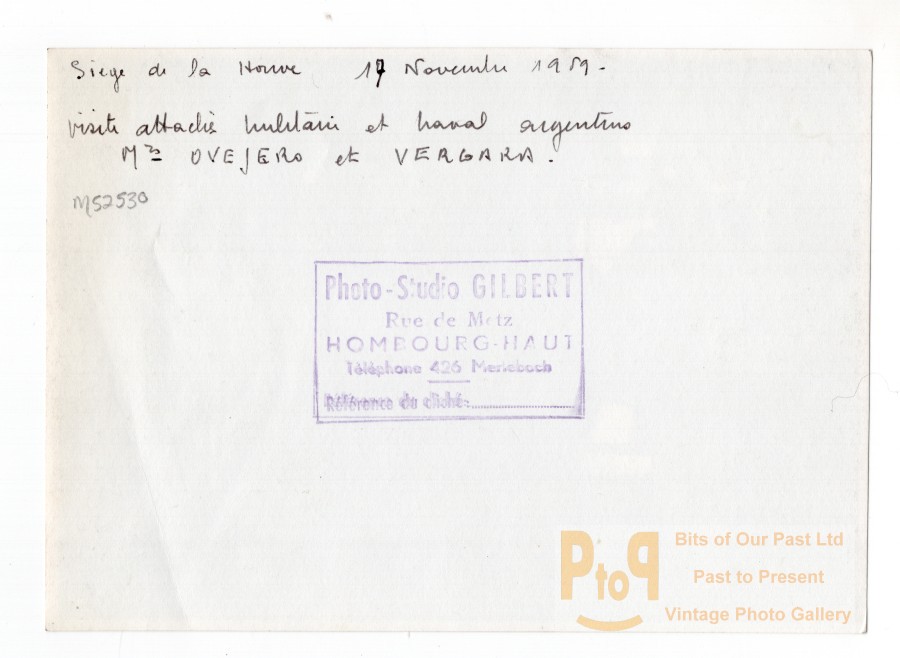 Siege de la Houve 17 Novembre 1959.
visite attachés militaire et naval argentins
Mrs OVEJERO et VERGARA.
M52530
Photo-Studio GILBERT
Rue de Metz
HOMBOURG-HAUT
Téléphone 426 Merlebach
Référence du cliché:
PtoP
Bits of Our Past Ltd
Past to Present
Vintage Photo Gallery